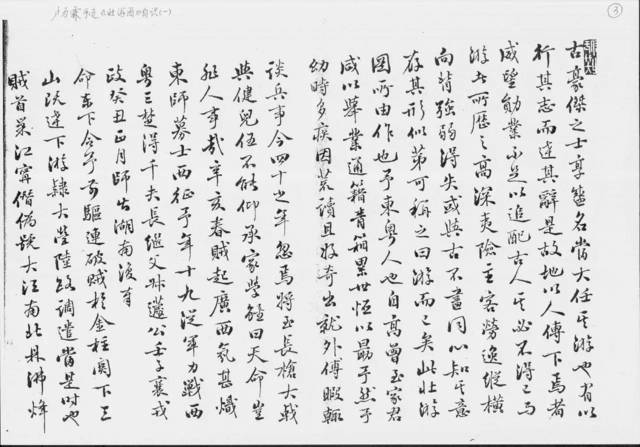 《壮游图》自识(一)
③
古豪傑之士享盛名當大任其游也有以
行其志而達其辭是故地以人傳下焉者
威望勛業不足以追配古人其必不得已而
游 所歷之高深夷險主客勞逸縱橫
向背強弱得失或與古不盡同以知其意
存其形似第可稱之曰游而已矣此壯游
圖所由作也予東粵人也自高曾至家君
咸以舉業通籍青箱累世恒以勗予然予
幼時多疾因荒讀且好奇出就外傅暇輒
談兵事今四十之年忽焉將至長槍大戟
與健兒伍不能仰承家學雖曰天命豈
非人事哉辛亥春賊起廣西氛甚熾
東師募士西征予年十九從軍力戰西
粵三楚得千夫長繼父 公壬子襄戎
政癸丑正月師出湖南復有
命東下 驅連破賊於金柱關下三
山 下游隸大營陸路調遣當是時也
賊首巢江寧僭偽號大江南北鼎沸烽